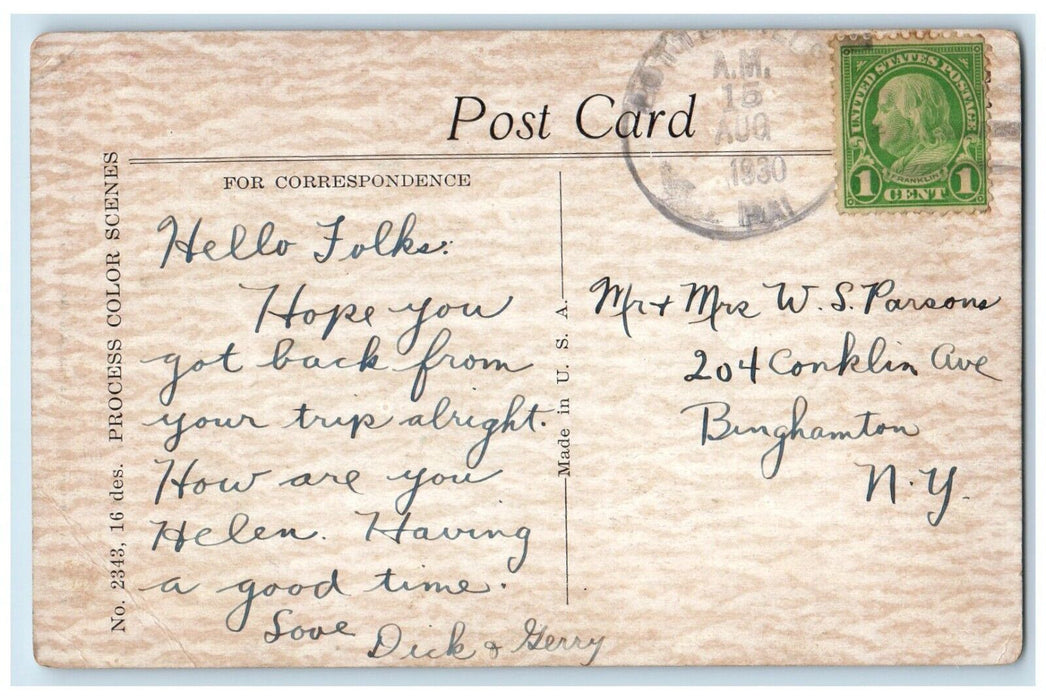 Post Card
FOR CORRESPONDENCE
Hello Folks:
Hope you
got back from
your trip alright.
How are you
Helen. Having
a good time.
Love Dick & Gerry
No. 2343, 16 des. PROCESS COLOR SCENES
Made in U. S. A.
A.M.
15
AUG
1930
UNITED STATES POSTAGE
FRANKLIN
1 CENT 1
Mr + Mrs W. S. Parsons
204 Conklin Ave
Binghamton
N. Y.